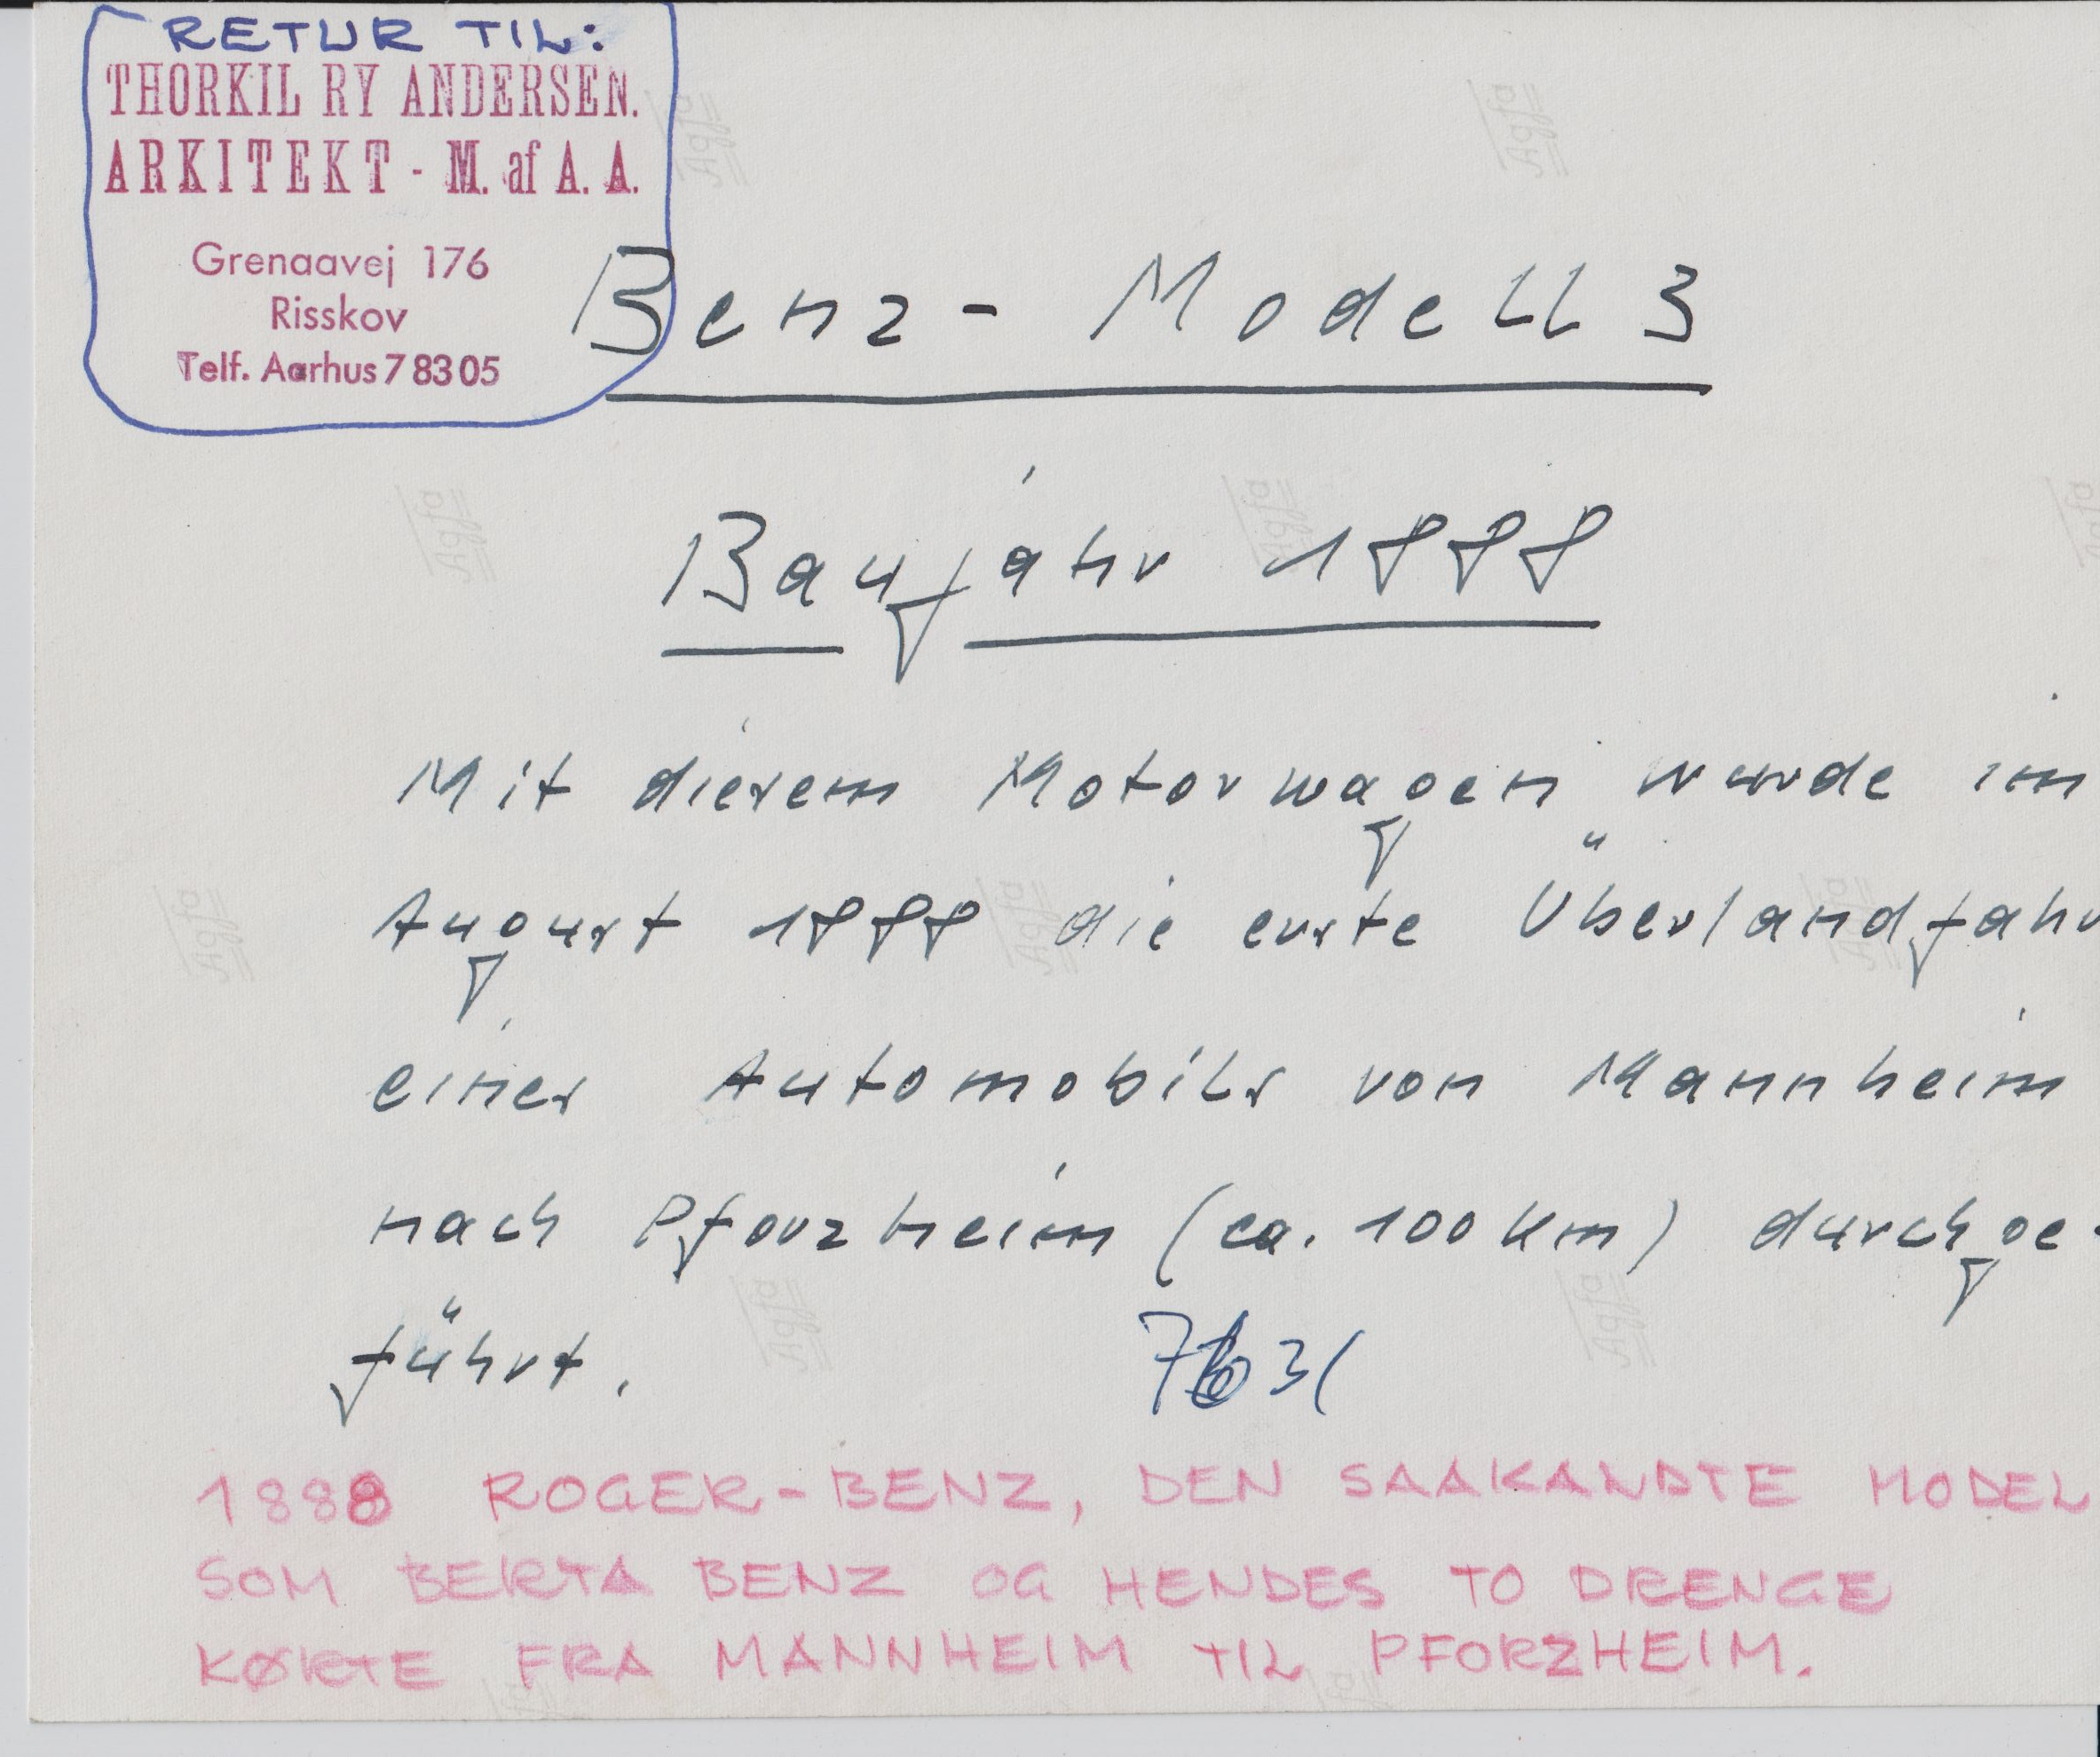 RETUR TIL:
THORKIL RY ANDERSEN.
ARKITEKT - M. af A. A.
Grenaavej 176
Risskov
Telf. Aarhus 7 83 05
Benz - Modell 3
Baujahr 1888
Mit diesem Motorwagen wurde im
August 1888 die erste Überlandfahr
eines Automobils von Mannheim
nach Pforzheim (ca. 100 km) durchge-
führt.
1888 ROGER-BENZ, DEN SAAKANDTE MODEL
SOM BERTA BENZ OG HENDES TO DRENGE
KØRTE FRA MANNHEIM TIL PFORZHEIM.
Agfa